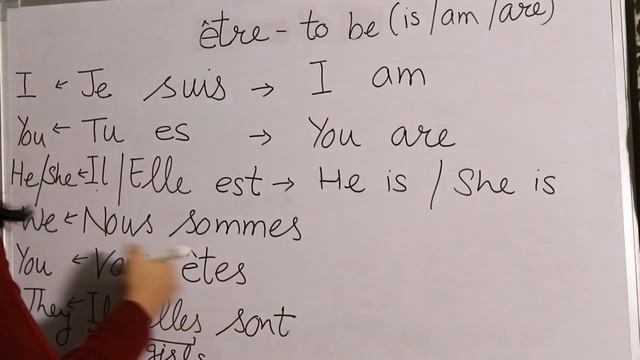 être - to be (is/am/are)
I ← Je suis → I am
You ← Tu es → You are
He/She ← Il/Elle est → He is / She is
We ← Nous sommes
You ← êtes
They ← sont
girls